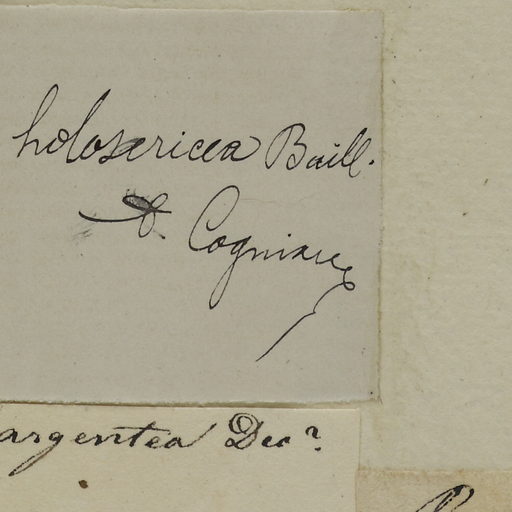 holosericea Baill.
A. Cogniaux
argentea Dec?